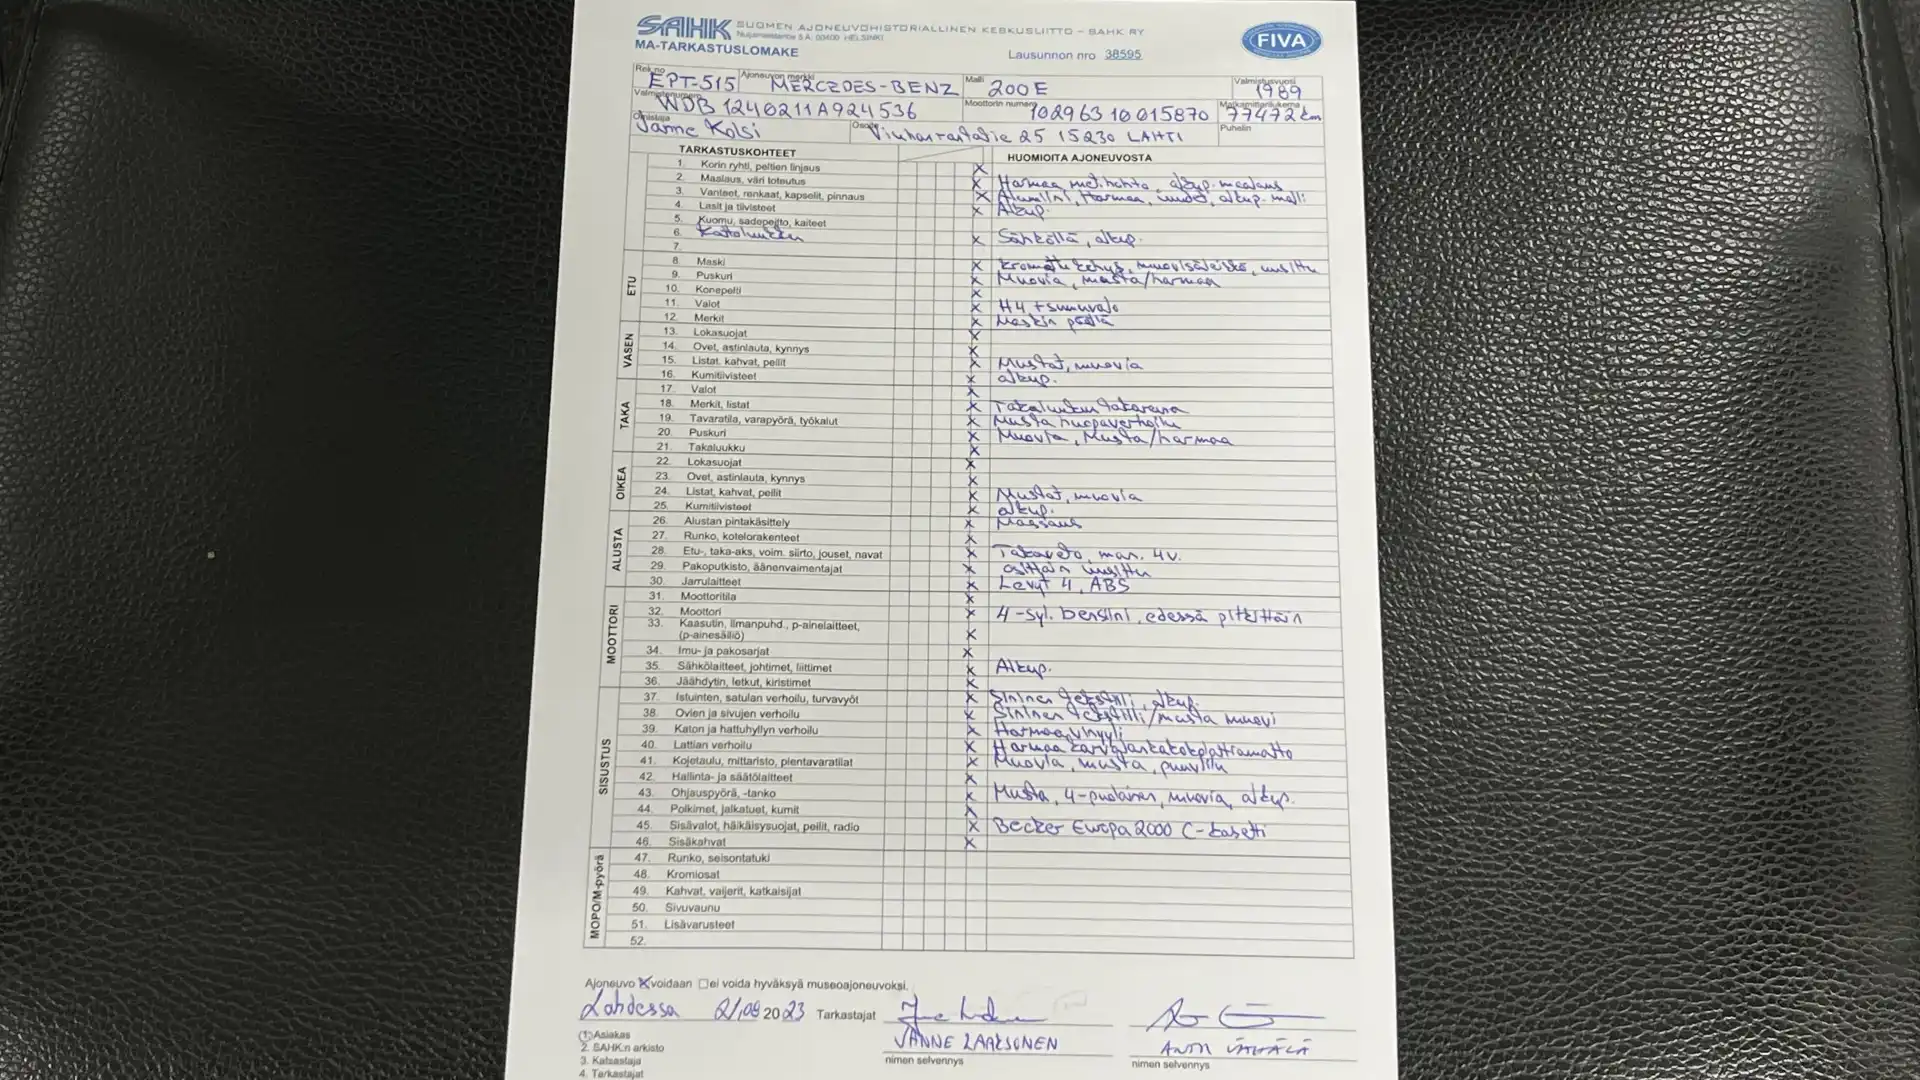 SAHK SUOMEN AJONEUVOHISTORIALLINEN KESKUSLIITTO - SAHK RY
00400 HELSINKI
FIVA
MA-TARKASTUSLOMAKE
Lausunnon nro 38595
Rek.no EPT-515 Ajoneuvon merkki MERCEDES-BENZ Malli 200E Valmistusvuosi 1989
Valmistenumero WDB 1240211A924536 Moottorin numero 102963 10 015870 Matkamittarilukema 77472 km
Omistaja Janne Kolsi Osoite 25 15230 LAHTI Puhelin
TARKASTUSKOHTEET HUOMIOITA AJONEUVOSTA
1. Korin ryhti, peltien linjaus X
2. Maalaus, väri toteutus X Harmaa met.hohto, alkup. maalaus
3. Vanteet, renkaat, kapselit, pinnaus X Alumiini, Harmaa, uudet, alkup. malli
4. Lasit ja tiivisteet X Alkup.
5. Kuomu, sadepeitto, kaiteet
6. Kattoluukku X Sähköllä, alkup.
7.
ETU
8. Maski X Kromattu kehys, muovisäleikkö, uusittu
9. Puskuri X Muovia, musta/harmaa
10. Konepelti X
11. Valot X H4 + sumuvalo
12. Merkit X Maskin päällä
VASEN
13. Lokasuojat X
14. Ovet, astinlauta, kynnys X
15. Listat, kahvat, peilit X Mustat, muovia
16. Kumitiivisteet X alkup.
TAKA
17. Valot X
18. Merkit, listat X Takaluukun takareuna
19. Tavaratila, varapyörä, työkalut X Musta huopaverhoilu
20. Puskuri X Muovia, Musta/harmaa
21. Takaluukku X
OIKEA
22. Lokasuojat X
23. Ovet, astinlauta, kynnys X
24. Listat, kahvat, peilit X Mustat, muovia
25. Kumitiivisteet X alkup.
ALUSTA
26. Alustan pintakäsittely X Massaus
27. Runko, kotelorakenteet X
28. Etu-, taka-aks, voim. siirto, jouset, navat X Takaveto, man. 4v.
29. Pakoputkisto, äänenvaimentajat X osittain uusittu
30. Jarrulaitteet X Levyt 4, ABS
MOOTTORI
31. Moottoritila X
32. Moottori X 4-syl. bensiini, edessä pitkittäin
33. Kaasutin, ilmanpuhd., p-ainelaitteet,
(p-ainesäiliö) X
34. Imu- ja pakosarjat X
35. Sähkölaitteet, johtimet, liittimet X Alkup.
36. Jäähdytin, letkut, kiristimet X
SISUSTUS
37. Istuinten, satulan verhoilu, turvavyöt X Sininen tekstiili, alkup.
38. Ovien ja sivujen verhoilu X Sininen tekstiili/musta muovi
39. Katon ja hattuhyllyn verhoilu X Harmaa vinyyli
40. Lattian verhoilu X Harmaa karvalankakokolattiamatto
41. Kojetaulu, mittaristo, pientavaratilat X Muovia, musta, puuviilu
42. Hallinta- ja säätölaitteet X
43. Ohjauspyörä, -tanko X Musta, 4-puolainen, muovia, alkup.
44. Polkimet, jalkatuet, kumit X
45. Sisävalot, häikäisysuojat, peilit, radio X Becker Europa 2000 C-kasetti
46. Sisäkahvat X
MOPO/M-pyörä
47. Runko, seisontatuki
48. Kromiosat
49. Kahvat, vaijerit, katkaisijat
50. Sivuvaunu
51. Lisävarusteet
52.
Ajoneuvo X voidaan ei voida hyväksyä museoajoneuvoksi.
Lahdessa 21,09 2023 Tarkastajat
JANNE LAAKSONEN
nimen selvennys nimen selvennys
(1.) Asiakas
2. SAHK:n arkisto
3. Katsastaja
4. Tarkastajat